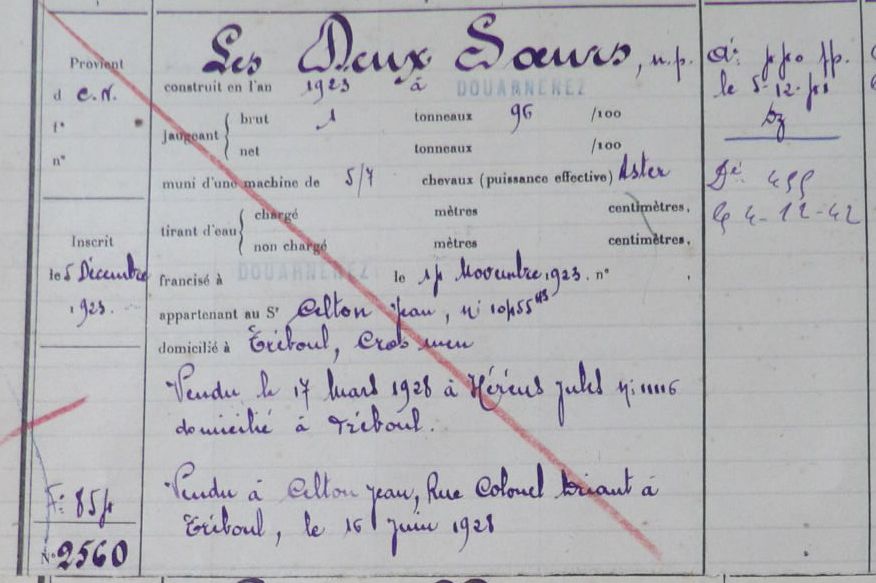 Provient
d C.N.
f°
n°
Inscrit
le 5 Décembre
1923.
F:
N° 2560
Les Deux Sœurs, n.p.
construit en l'an 1923 à DOUARNENEZ
jaugeant { brut 1 tonneaux 96 /100
net tonneaux /100
muni d'une machine de 5/7 chevaux (puissance effective) Aster
tirant d'eau { chargé mètres centimètres.
non chargé mètres centimètres.
francisé à DOUARNENEZ le Novembre 1923. n° .
appartenant au Sr Celton Jean, n°
domicilié à Tréboul,
Vendu le 17 Mars 1928 à Jules n: 11116
domicilié à Tréboul.
Vendu à Celton Jean, Rue Colonel Briant à
Tréboul, le 16 Juin 1928
le 5-12-
Dz
Dé:
4-12-42